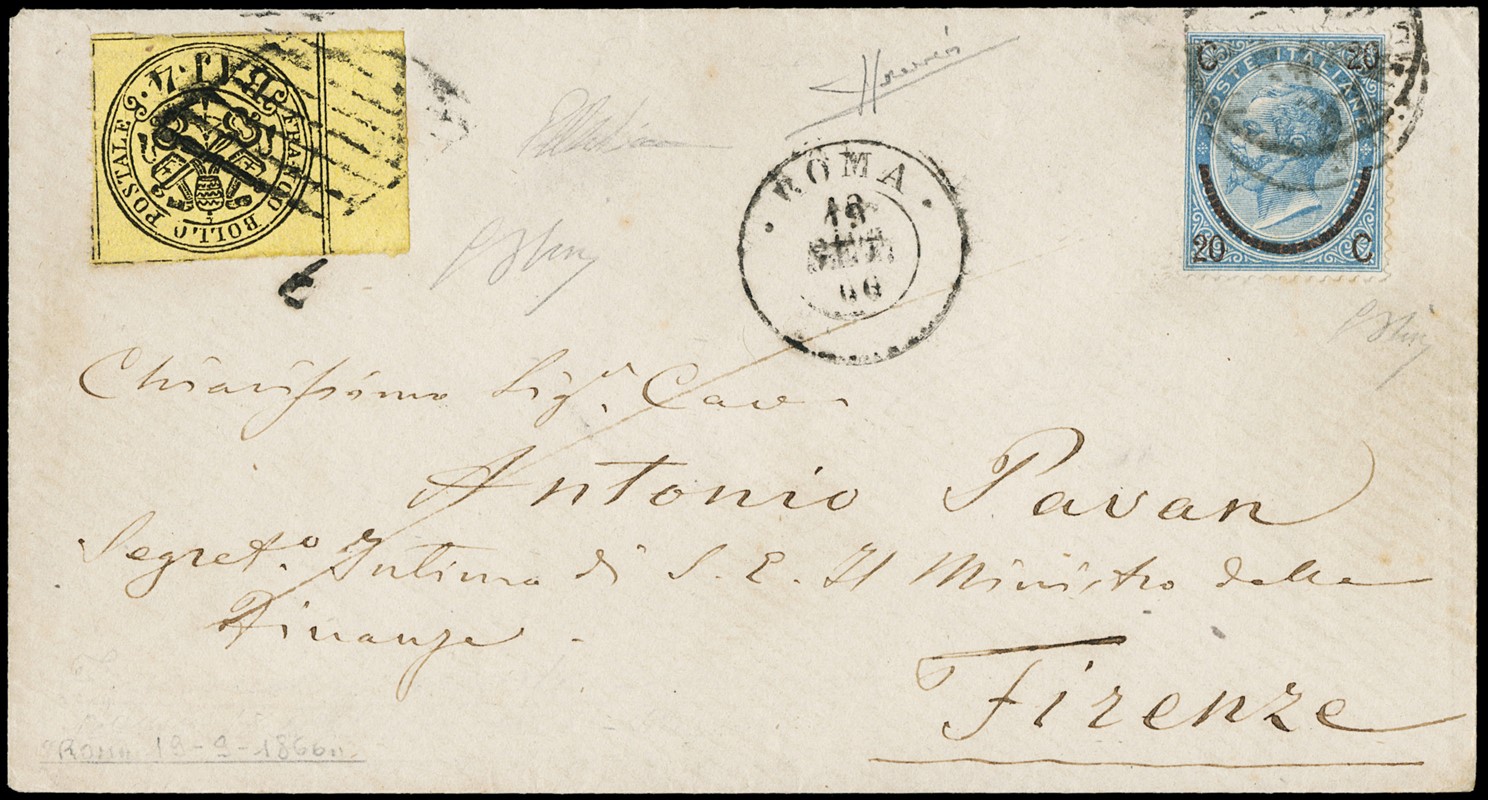 FRANCO BOLLO POSTALE
BAJ. 4.
C 20
POSTE ITALIANE
20 C
ROMA
19
SETT
66
Chiarissimo Sig.r Cav.
Antonio Pavan
Segret.o Intimo di S. E. Il Ministro delle
Finanze
Firenze
Roma 19-9-1866